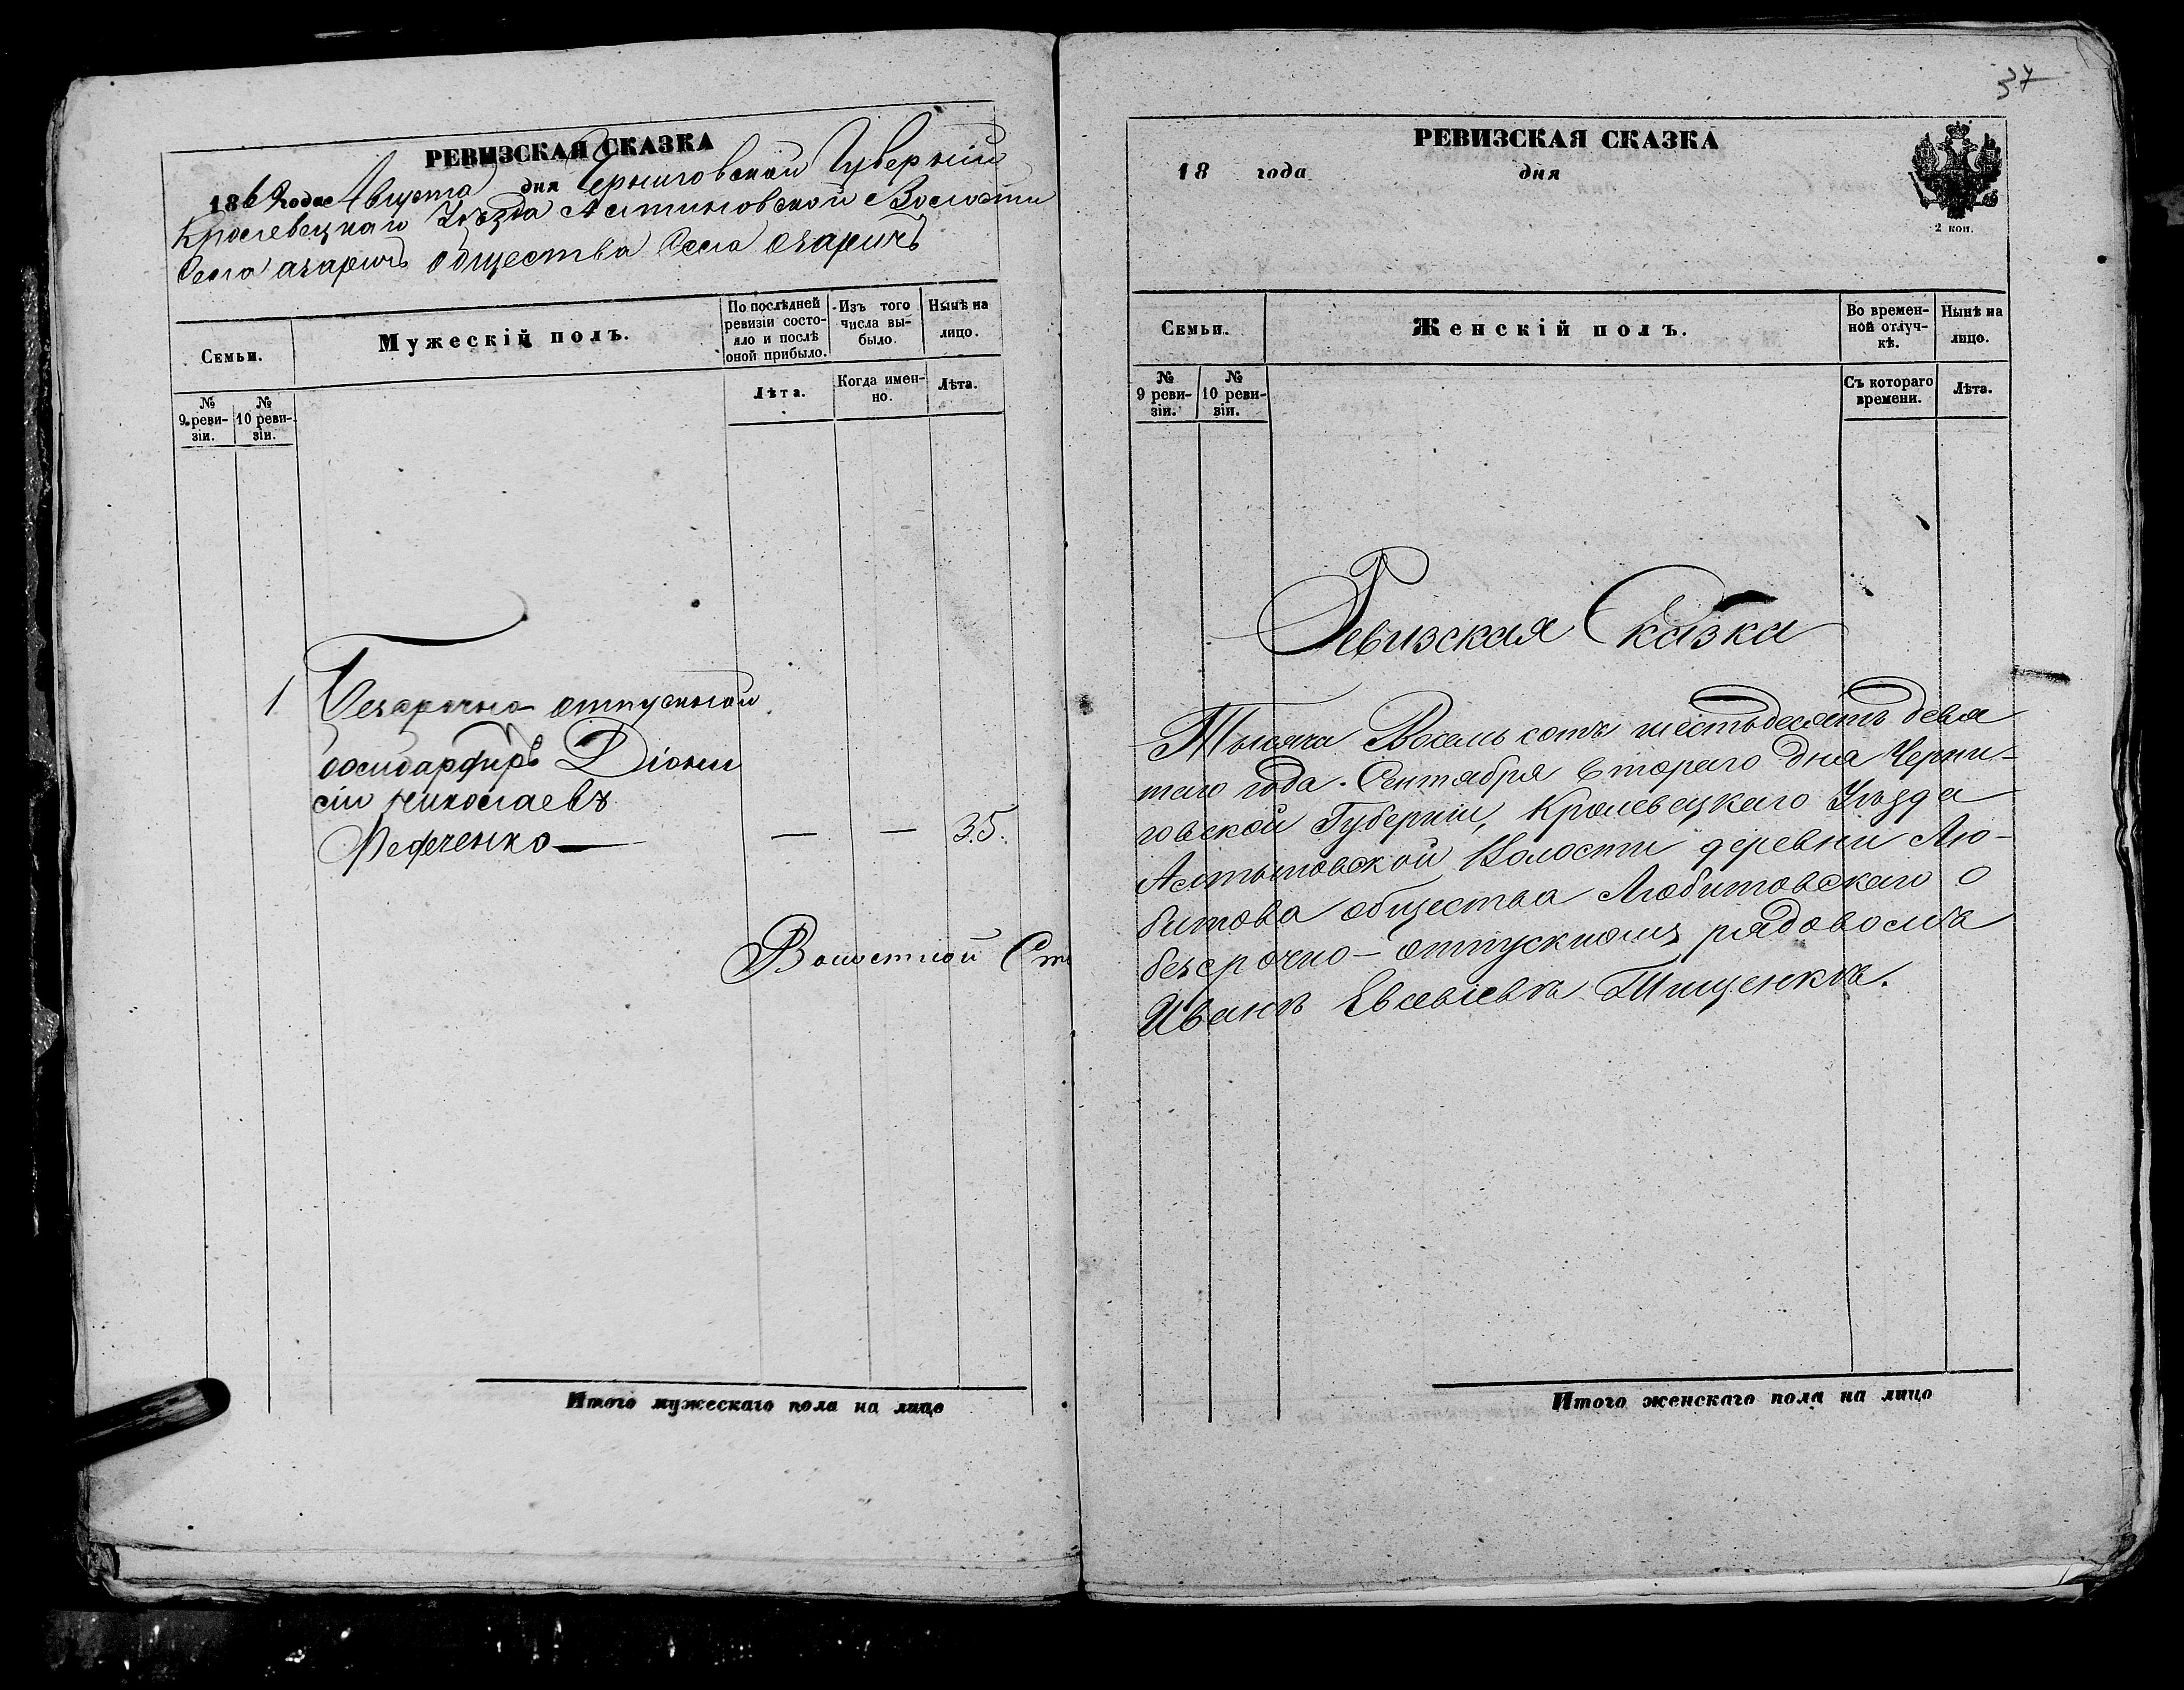 РЕВИЗСКАЯ СКАЗКА
1869 года Августа дня Черниговской Губерніи
Кролевецкаго Уѣзда Алтыновской Волости
Села Озаричъ общества Села Озаричъ
Семьи.
Мужескій полъ.
По послѣдней ревизіи состояло и послѣ оной прибыло.
Изъ того числа выбыло.
Нынѣ на лицо.
№ 9 ревизіи.
№ 10 ревизіи.
Лѣта.
Когда именно.
Лѣта.
1 Безсрочно отпускной
бомбардиръ Діони
сій Николаевъ
Федченко — — — 35.
Волостной
Итого мужескаго пола на лицо
37
РЕВИЗСКАЯ СКАЗКА
18 года дня
2 коп.
Семьи.
Женскій полъ.
Во временной отлучкѣ.
Нынѣ на лицо.
№ 9 ревизіи.
№ 10 ревизіи.
Съ котораго времени.
Лѣта.
Ревизская Сказка
Тысяча Восемь сотъ шестьдесятъ девя
таго года. Сентября втораго дня Черни-
говской Губерніи, Кролевецкаго Уѣзда
Алтыновской Волости деревни Лю-
битова общества Любитовскаго о
безсрочно-отпускномъ рядовомъ
Иванѣ Евсевіевѣ Тищенкѣ.
Итого женскаго пола на лицо